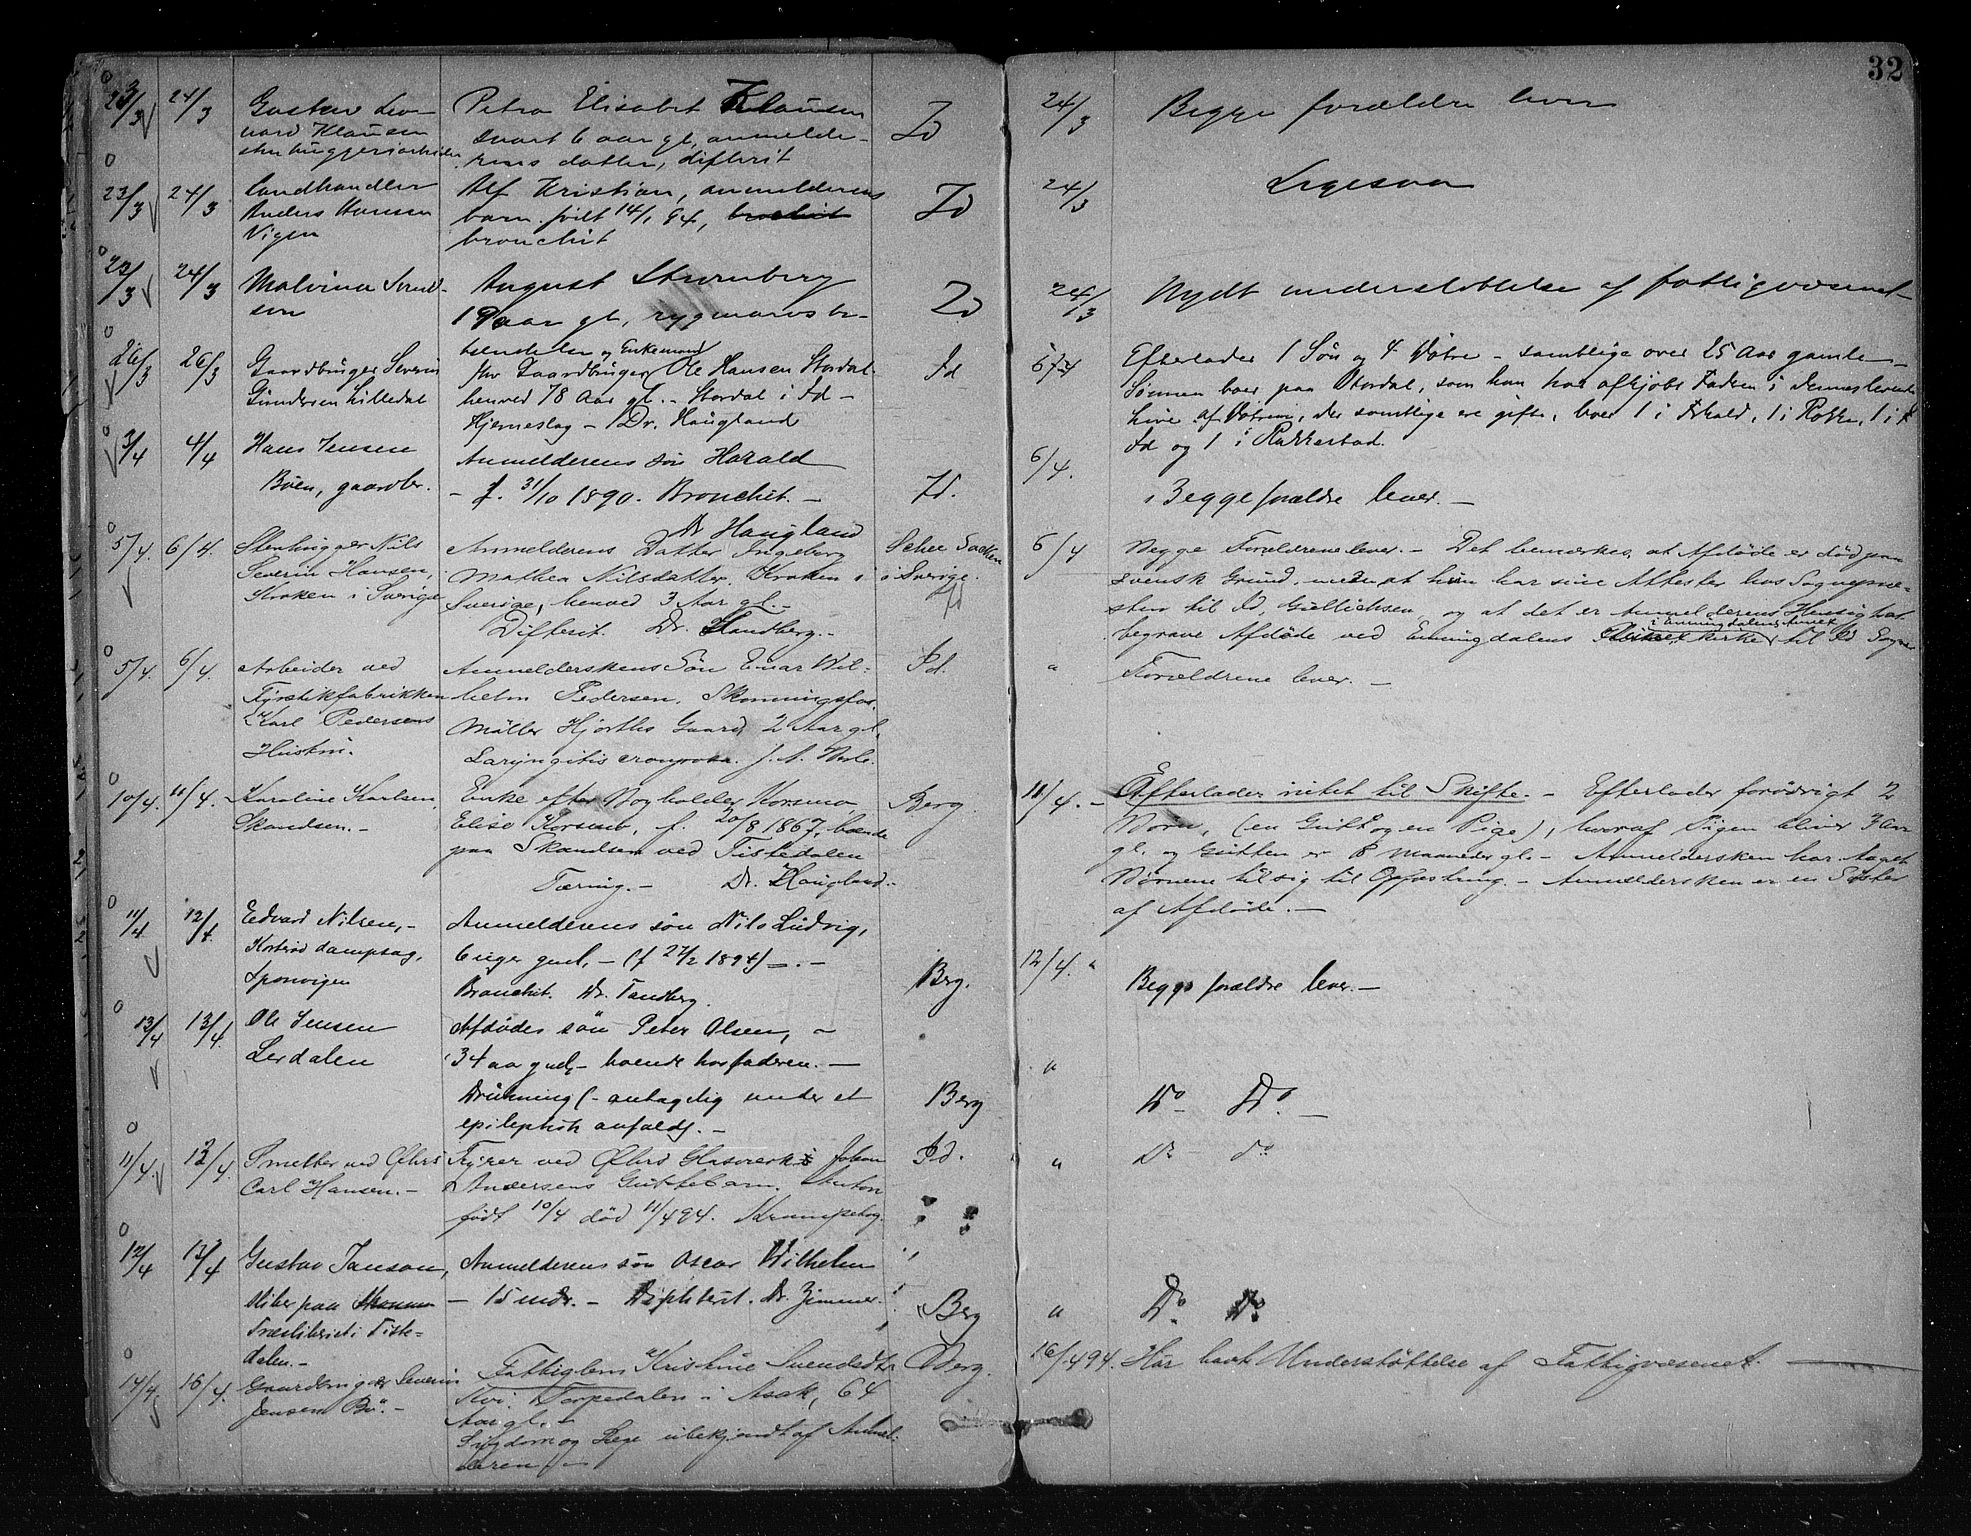 32
23/3 24/3 Gustav Leo- Petra Elisabet Klausen Id 24/3 Begge forældre lever
nard Klausen svart 6 aar gl, anmelde-
stenhuggeriarbeider rens datter, difterit
23/3 24/3 Landhandler Alf Kristian, anmelderens Id 24/3 Ligesaa
Anders Hansen barn født 14/1 94,
Vigen bronchit
23/3 24/3 Malvina Svend- August Strømberg Id 24/3 Nydt understøttelse af fattigvæsenet
sen 19 aar gl, rygmarvsbe-
tændelse og Enkemand
26/3 26/3 Gaardbruger Severin fhv Gaardbruger Ole Hansen Stordal Id 6/4 Efterlader 1 Søn og 4 Døtre – samtlige over 25 Aar gamle –
Gundersen Lilledal henved 78 Aar gl. – Stordal i Id – Sønnen boer paa Stordal, som han har afkjøbt Faderen i dennes levende
Hjerneslag – Dr. Haugland live. af Døtrene, der samtlige ere gifte, boer 1 i Fr.hald, 1 i Rokke, 1 i
Id og 1 i Rakkestad.
3/4 4/4 Hans Jensen Anmelderens søn Harald 6/4.
Büen, gaardbr. – f. 31/10 1890. Bronchit. – Id. Begge forældre lever. –
Dr Haugland
5/4. 6/4. Stenhugger Nils Anmelderens Datter Ingeborg i Sverige. 6/4 Begge Forældrene lever. – Det bemærkes, at Afdøde er død paa
Severin Hansen, Mathea Nilsdatter, Kroken i Id svensk Grund, men at hun har sine Attester hos Sognepræ-
Kroken i Sverige Sverige, henved 3 Aar gl. – sten til Id, Gullichsen, og at det er Anmelderens Hensigt at
Difterit. Dr. Sandberg. – begrave Afdøde ved Enningdalens kirke i Enningdalens Annex til Id Sogn
5/4. 6/4. Arbeider ved Anmelderskens Søn Einar Wil- Id. " Forældrene lever. –
Fyrstikfabrikken helm Pedersen. Skonningsfos.
Karl Pedersens Møller Hjorths Gaard, 2 Aar gl.
Hustru. Laryngitis crouposa.
10/4. 11/4. Karoline Karlsen, Enke efter Bogholder Korsmo, Berg 11/4. – Efterlader intet til Skifte. – Efterlader forøvrigt 2
Skandsen. – Elise Korsmo, f. 20/8 1867, boende Børn, (en Gut og en Pige), hvoraf Pigen bliver 3 Aar
paa Skandsen ved Tistedalen gl. og Gutten er 8 Maaneder gl. – Anmeldersken har taget
Tæring. – Dr. Haugland. Børnene til sig til Opfostring. – Anmeldersken er en Søster
af Afdøde. –
11/4 12/4. Edvard Nilsen, – Anmelderens søn Nils Ludvig,
dampsag, 6 uger gml, – (f 27/2 1894) – 12/4. "
Sponvigen Bronchit. Dr. Tandberg. Berg. Begge forældre lever. –
13/4 13/4. Ole Jensen Afdødes søn Peter Olsen, –
Lerdalen 34 aa gml, – boende hos faderen. – "
Drukning (– antagelig under et Berg Do Do. –
epileptisk anfald). –
11/4. 12/4. Smelter ved Ørhrs Fyrer ved Ørhrs Glasværk Johan Id. " Do do
Carl Hansen. – Andersens Guttebarn. Anton
født 10/4 død 11/4 94. Krampetog.
12/4 13/4 Gustav Janson, Anmelderens søn Oscar Wilhelm
Sliber paa – 15 mdr. – Diphterit. Dr. Zimmer. Berg " Do. Do.
Træsliberiet i Tiste-
dalen. –
14/4 16/4. Gaardbruger Severin Fattiglem Kristine Svendsdtr Berg. 16/4 94. Har havt Understøttelse af Fattigvæsenet. –
Jensen Bø. – Torpedalen i Asak, 64
Aar gl. –
Sygdom og Læge ubekjendt af Anmel-
deren. –